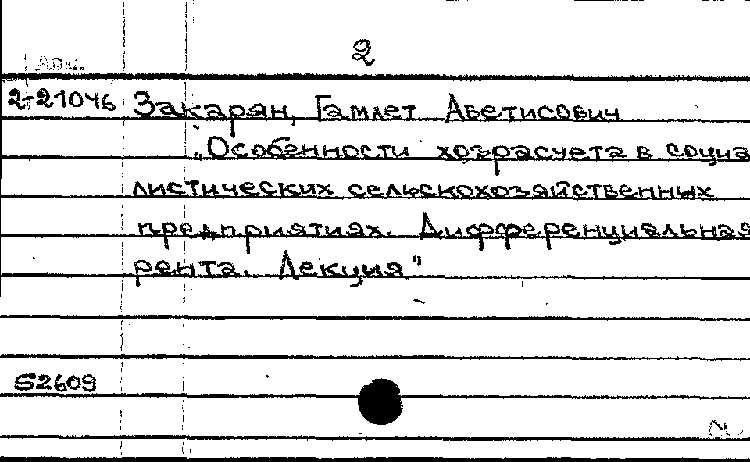 2
Арм.
2-21046 Закарян, Гамлет Аветисович
„Особенности хозрасчета в социа
листических сельскохозяйственных
предприятиях. Дифференциальная
рента. Лекция"
52609